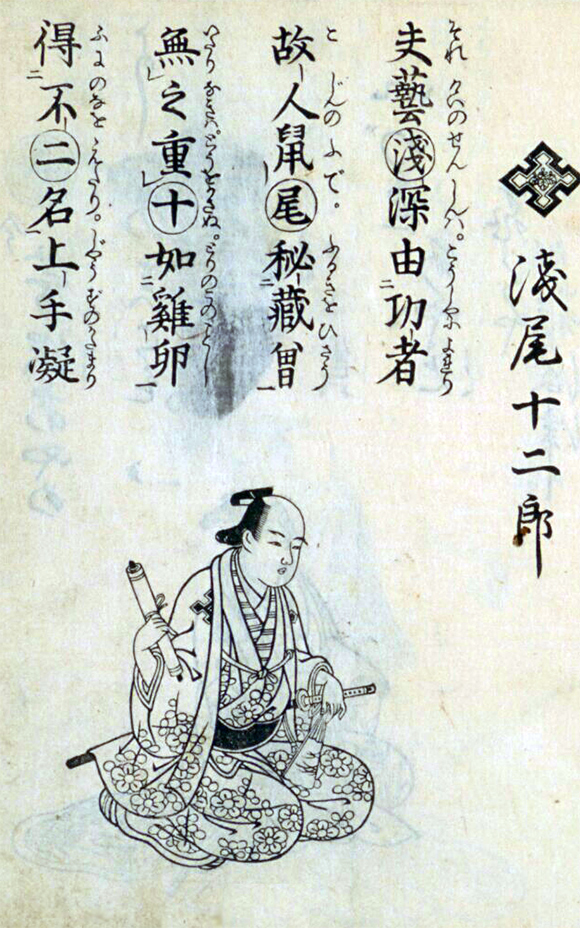 淺尾十二郎
それ げいのせんしんハ。こうしやによれり
夫藝淺深由功者
じんのふで。ふるきをひさう
故人鼠尾秘藏曾
とりのこのごとし
無之重十如雞卵
ふじのなをえたり。じやうずのかたまり
得不二名上手凝